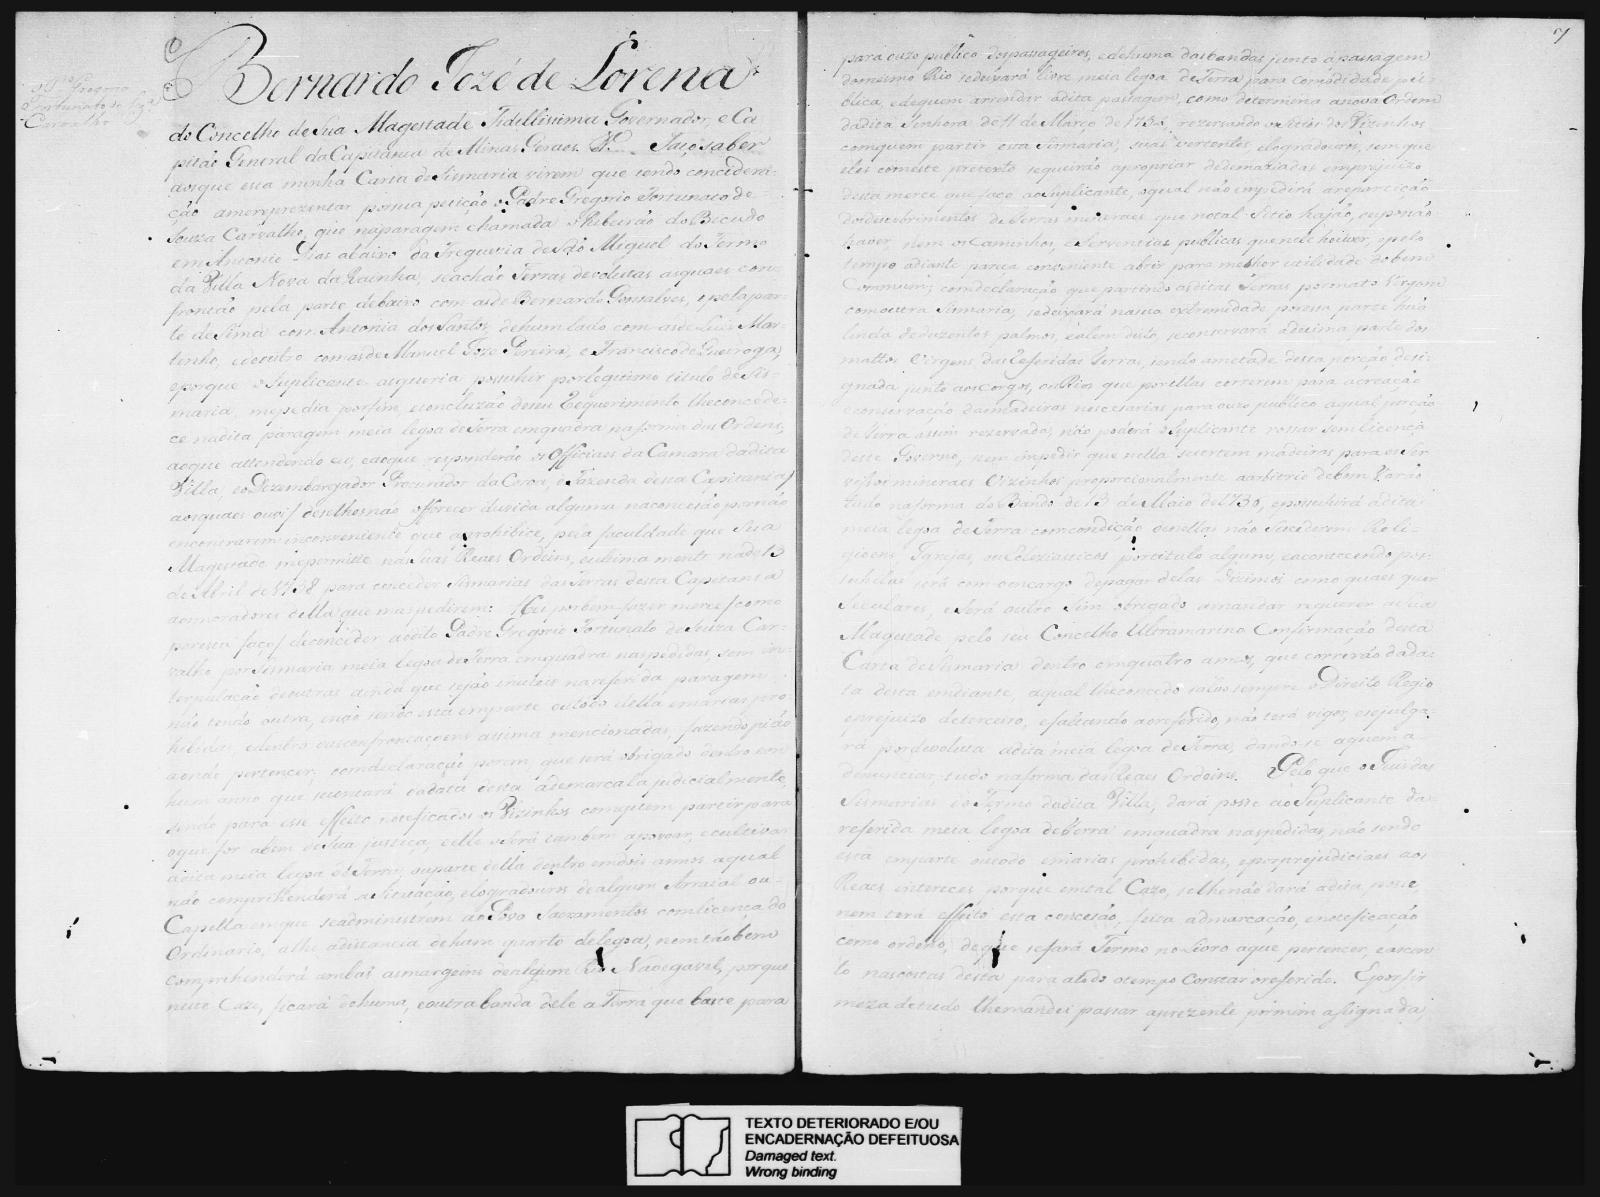 Pe. Gregorio
Fortunato de Sza.
Carvalho
Bernardo Jozé de Lorena
do Concelho de Sua Magestade Fidellissima Governador, e Ca
pitão General da Capitania de Minas Geraes. &. Faço saber
aos que esta minha Carta de Sismaria virem que tendo concidera-
ção amereprezentar por sua petição o Padre Gregorio Fortunato de
Souza Carvalho, que na paragem chamada o Ribeirão do Bicudo
em Antonio Dias abaixo da Freguezia de São Miguel do Termo
da Villa Nova da Rainha, se achão Terras devolutas as quaes con
frontão pela parte debaixo com as de Bernardo Gonsalves, e pela par
te de Sima com Antonia dos Santos, de hum lado com as de Luis Mar-
tenho, e de outro com as de Manuel Joze Pereira, e Francisco de Queiroga,
e porque o Suplicante as queria possuhir por legitimo titulo de Sis-
maria, me pedia por fim, e concluzão de seu Requerimento lhe concede-
ce na dita paragem meia legoa de Terra em quadra na forma das Ordens,
ao que attendendo eu, e ao que responderão os Officiaes da Camara da dita
Villa, e o Dezembargador Procurador da Coroa, e Fazenda desta Capitania/
aos quaes ouvi/ de se lhes não offerecer duvida alguma na concesão por não
encontrarem inconveniente que a prohibice, pela faculdade que Sua
Magestade me permitte nas suas Reaes Ordens, e ultima mente na de 13
de Abril de 1738 para conceder Sismarias das Terras desta Capitania
aos moradores della que mas pedirem: Hei por bem fazer merce/ como
por esta faço/ de conceder ao dito Padre Gregorio Fortunato de Souza Car-
valho por Sismaria meia legoa de Terra em quadra nas pedidas, sem in-
terpulação de outras ainda que sejão inuteis na referida paragem
não tendo outra, e não sendo esta em parte ou todo della em arias pro
hibidas, e dentro das confrontaçoens assima mencionadas, fazendo pião
aonde pertencer, com declaração porem, que será obrigado dentro em
hum anno que se contará da data desta a demarcala judicialmente,
sendo para esse effeito noteficados os Vizinhos com quem partir para
o que for a bem de sua justiça, e elle o será tambem a povoar, e cultivar
a dita meia legoa de Terra, ou parte della dentro em dois annos a qual
não comprehenderá a Situação, e logradouros de algum Arraial ou-
Capella em que se administrem ao Povo Sacramentos com licença do
Ordinario, athe a distancia de hum quarto de legoa, nem tãobem
comprehenderá ambas as margens de algum Rio Navegavel, porque
neste Cazo, ficará de huma, e outra banda dele a Terra que baste para
7
para uzo publico dos passageiros, e de huma das bandas junto á passagem
do mesmo Rio se deixará livre meia legoa de Terra para comodidade pu-
blica, e de quem arrendar a dita passagem, como determina a nova Ordem
da dita Senhora de 11 de Março de 1754, rezervando os Sitios dos Vizinhos
com quem partir esta Sismaria, suas vertentes, e logradouros, sem que
eles com este pretexto se queirão apropriar de demaziadas em prejuizo
desta merce que faço ao Suplicante, o qual não impedirá a repartição
dos descobrimentos de Terras mineraes que no tal Sitio hajão, ou possão
haver, nem os Caminhos, e Serventias publicas que nele houver, e pelo
tempo adiante pareça conveniente abrir para melhor utilidade do bem
Commum; com declaração que partindo as ditas Terras por mato Virgem
com outra Sismaria, se deixará na sua extremidade por essa parte hua
linda de duzentos palmos, e alem disto, se conservará a decima parte dos
mattos Virgens das Referidas Terras, sendo ametade dessa porção desi-
gnada junto aos Corgos, ou Rios que por ellas correrem para a creação
e conservação das madeiras nescesarias para o uzo publico a qual porção
de Terra assim rezervada, não poderá o Suplicante rossar sem licença
deste Governo, nem impedir que nella se cortem madeiras para os Ser
viços mineraes Vizinhos proporcionalmente a arbitrio de bom Varão
tudo na forma do Bando de 13 de Maio de 1736, e possuhirá a dita
meia legoa de Terra com condição de nellas não Sucederem Reli-
gioens, Igrejas, ou Eclesiasticos por titulo algum, e acontecendo pos-
suhilas será com o encargo de pagar delas Dizimos como quaes quer
Seculares, e será outro Sim obrigado a mandar requerer a Sua
Magestade, pelo seu Concelho Ultramarino Confirmação desta
Carta de Sismaria dentro em quatro annos, que correrão da da-
ta desta em diante, a qual lhe concedo salvo sempre o Direito Regio
e prejuizo de terceiro, e faltando ao referido, não terá vigor, e se julga-
rá por devoluta a dita meia legoa de Terra, dando-se a quem a
denunciar, tudo na forma das Reaes Ordens. Pelo que o Juiz das
Sismarias do Termo da dita Villa, dará posse ao Suplicante da-
referida meia legoa de Terra em quadra nas pedidas, não sendo
esta em parte ou todo em arias prohibidas, e por prejudiciaes aos
Reaes intereces, porque em tal Cazo, se lhe não dará a dita posse,
nem terá effeito esta concesão, feita a dmarcação, e noteficação
como ordeno, de que se fará Termo no Livro a que pertencer, e assen
to nas costas desta para a todo o tempo Constar o referido. E por fir
meza de tudo lhe mandei passar a prezente por mim assignada,
TEXTO DETERIORADO E/OU
ENCADERNAÇÃO DEFEITUOSA
Damaged text.
Wrong binding